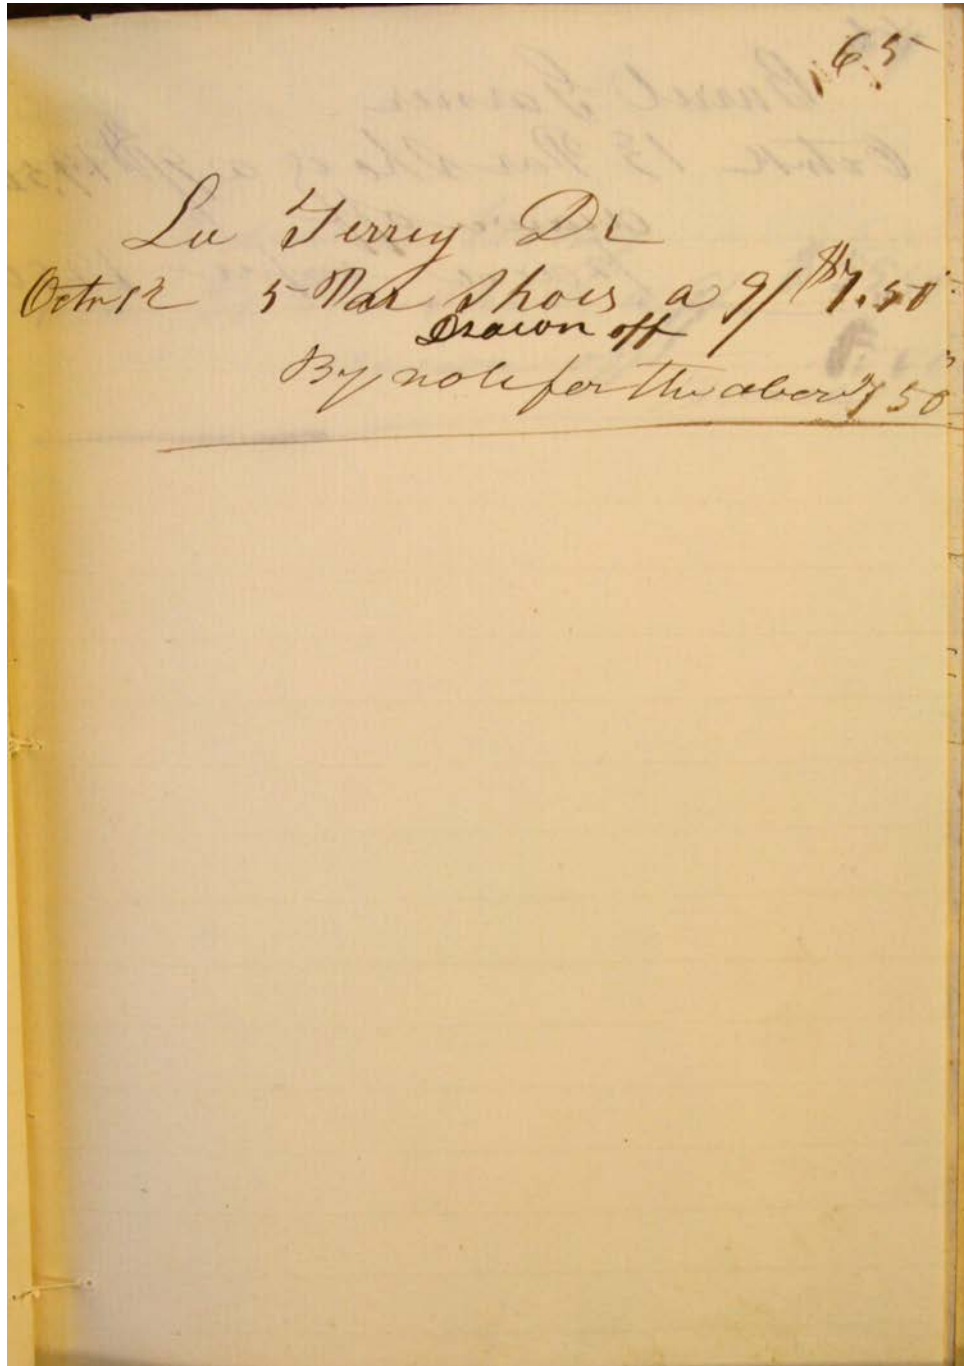 65
Lee Terrey Dr
Octr 12 5 Par Shoes a 9/ $7.50
Drawn off
By note for the above 7 50